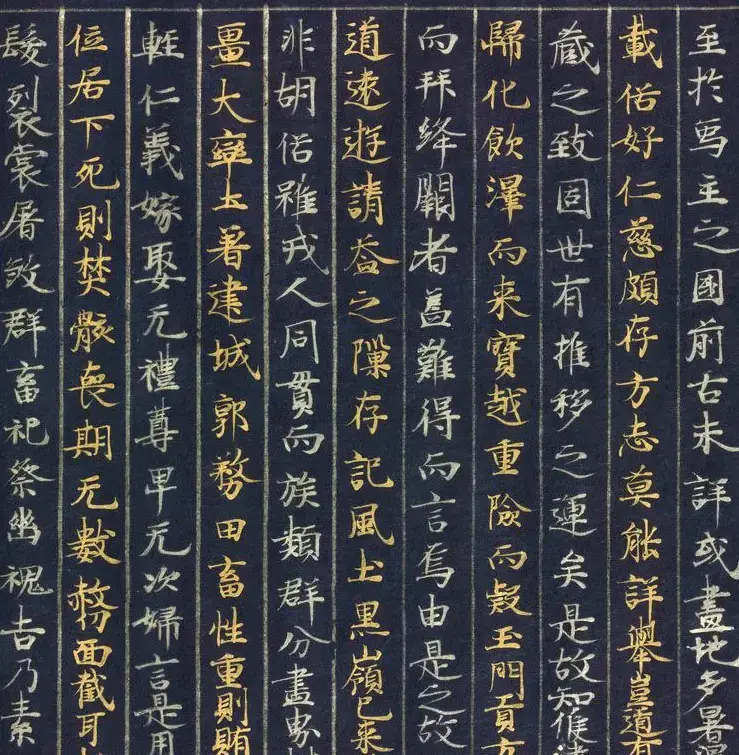 至於馬主之囯前古未詳或畫地多暑
載俗好仁慈頗存方志莫能詳舉豈道有
藏之致固世有推移之運矣是故知候
歸化飲澤而来賓越重險而款玉門貢方
而拜絳闕者蓋難得而言焉由是之故
道遠遊請益之隟存記風土黑嶺已来
非胡俗雖戎人同貫而族類群分畫
畺大率土著建城郭務田畜性重則賄
輕仁義嫁娶无禮尊卑无次婦言是用
位居下死則焚骸喪期无數剺面截耳
髮裂裳屠煞群畜祀祭幽魂吉乃素